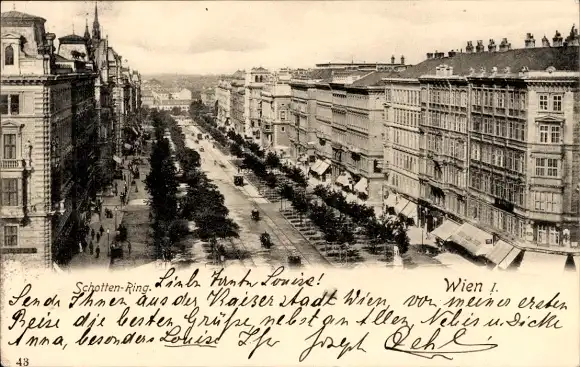 Schotten-Ring.
Wien I.
Liebe Tante Louise!
Sende Ihnen aus der Kaiserstadt Wien, von meiner ersten
Reise die besten Grüße, nebst an Allen, Nebis u. Dicke
Anna, besonders Louise Ihr Joseph Oehl
43